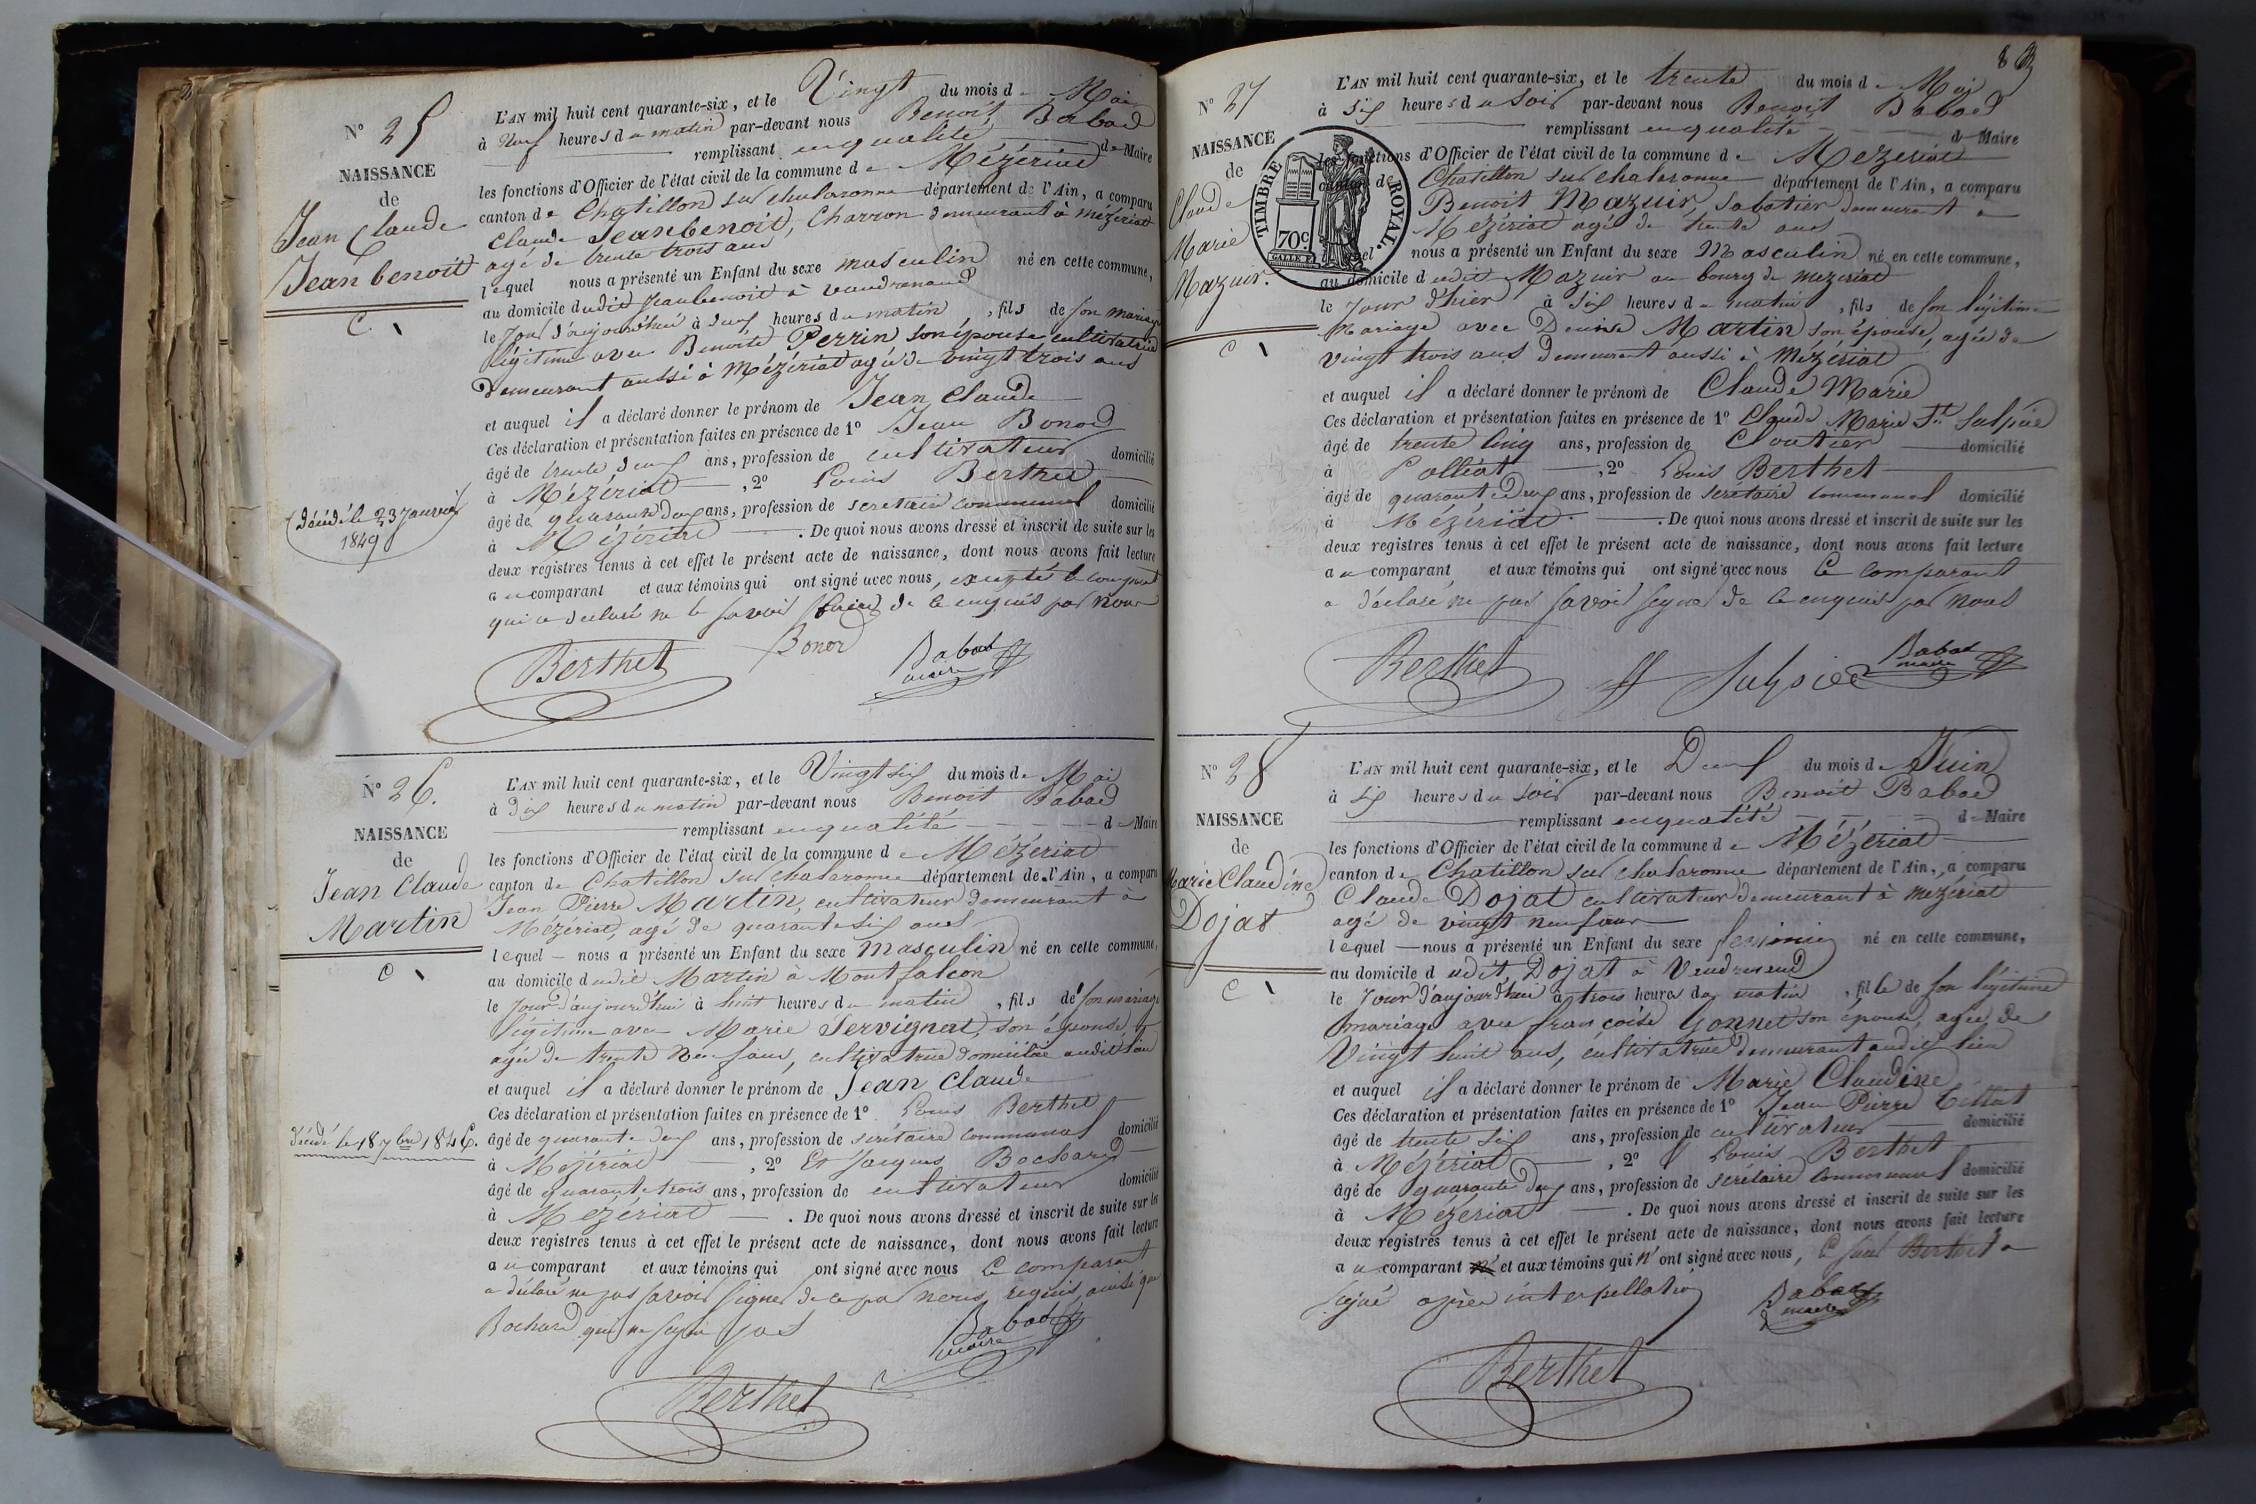 N° 25
NAISSANCE
de
Jean Claude
Jean benoit
C.
(Décédé le 23 Janvier
1849
L'AN mil huit cent quarante-six, et le Vingt du mois de Mai
à Neuf heures du matin par-devant nous Benoit Babad
remplissant en qualité de Maire
les fonctions d'Officier de l'état civil de la commune de Mézériat
canton de Chatillon sur chalaronne département de l'Ain, a comparu
Claude Jeanbenoit, Charron demeurant à mézériat
agé de trente trois ans
lequel nous a présenté un Enfant du sexe masculin né en cette commune,
au domicile dudit Jeanbenoit à vandrenand
le Jour d'aujourd'hui à deux heures du matin, fils de son mariage
légitime avec Benoite Perrin son épouse cultivatrice
Demeurant aussi à Mézériat agé de vingt trois ans
et auquel il a déclaré donner le prénom de Jean Claude
Ces déclaration et présentation faites en présence de 1° Jean Bonord
âgé de trente deux ans, profession de cultivateur domicilié
à Mézériat, 2° Louis Berthet
âgé de quarante deux ans, profession de secretaire communal domicilié
à Mézériat. De quoi nous avons dressé et inscrit de suite sur les
deux registres tenus à cet effet le présent acte de naissance, dont nous avons fait lecture
au comparant et aux témoins qui ont signé avec nous, exceptés le comparant
qui a declaré ne le savoir faire de ce enquis par nous
Berthet Bonord Babad
maire
N° 26.
NAISSANCE
de
Jean Claude
Martin
C
décédé le 18 7bre 1846.
L'AN mil huit cent quarante-six, et le Vingt six du mois de Mai
à Dix heures du matin par-devant nous Benoit Babad
remplissant en qualité de Maire
les fonctions d'Officier de l'état civil de la commune de Mézériat
canton de Chatillon sur chalaronne département de l'Ain, a comparu
Jean Pierre Martin, cultivateur demeurant à
Mézériat, agé de quarante six ans
lequel nous a présenté un Enfant du sexe Masculin né en cette commune,
au domicile dudit Martin à Montfalcon
le Jour d'aujourd'hui à huit heures du matin, fils de son mariage
légitime avec Marie Servignat, son épouse,
agée de trente Neuf ans, cultivatrice domiciliée audit lieu
et auquel il a déclaré donner le prénom de Jean Claude
Ces déclaration et présentation faites en présence de 1° Louis Berthet
âgé de quarante deux ans, profession de secrétaire communal domicilié
à Mézériat, 2° Et Jacques Bochard
âgé de quarante trois ans, profession de cultivateur domicilié
à Mézériat. De quoi nous avons dressé et inscrit de suite sur les
deux registres tenus à cet effet le présent acte de naissance, dont nous avons fait lecture
au comparant et aux témoins qui ont signé avec nous Le comparant
a déclaré ne pas savoir signer de ce par nous requis, ainsi que
Bochard qui ne signe pas
Babad
maire
Berthet
83
N° 27
NAISSANCE
de
Claude
Marie
Mazuir.
C
TIMBRE ROYAL.
70c.
L'AN mil huit cent quarante-six, et le trente du mois de Mai
à six heures du soir par-devant nous Benoit Babad
remplissant en qualité de Maire
les fonctions d'Officier de l'état civil de la commune de Mezeriat
canton de Chatillon sur chalaronne département de l'Ain, a comparu
Benoit Mazuir, Sabotier demeurant à
Mézériat agé de trente ans
lequel nous a présenté un Enfant du sexe Masculin né en cette commune,
au domicile dudit Mazuir au bourg de mezeriat
le Jour d'hier à dix heures du matin, fils de son légitime
Mariage avec Denise Martin son épouse, agée de
vingt trois ans Demeurant aussi à Mézériat
et auquel il a déclaré donner le prénom de Claude Marie
Ces déclaration et présentation faites en présence de 1° Claude Marie St. Sulpice
âgé de trente cinq ans, profession de Cloutier domicilié
à Polliat, 2° Louis Berthet
âgé de quarante Deux ans, profession de secrétaire communal domicilié
à Mézériat. De quoi nous avons dressé et inscrit de suite sur les
deux registres tenus à cet effet le présent acte de naissance, dont nous avons fait lecture
au comparant et aux témoins qui ont signé avec nous Le comparant
a déclaré ne pas savoir signer de ce enquis par nous
Berthet St Sulpice Babad
maire
N° 28
NAISSANCE
de
Marie Claudine
Dojat
C
L'AN mil huit cent quarante-six, et le Deux du mois de Juin
à six heures du soir par-devant nous Benoit Babad
remplissant en qualité de Maire
les fonctions d'Officier de l'état civil de la commune de Mézériat
canton de Chatillon sur chalaronne département de l'Ain, a comparu
Claude Dojat cultivateur demeurant à mézériat
agé de vingt neuf ans
lequel nous a présenté un Enfant du sexe feminin né en cette commune,
au domicile dudit Dojat à Vendrenend
le Jour d'aujourd'hui à trois heures du matin, fille de son légitime
mariage avec françoise Gonnet son épouse, agée de
Vingt huit ans, cultivatrice demeurant audit lieu
et auquel il a déclaré donner le prénom de Marie Claudine
Ces déclaration et présentation faites en présence de 1° Jean Pierre Tillat
âgé de trente six ans, profession de cultivateur domicilié
à Mézériat, 2° Louis Berthet
âgé de quarante Deux ans, profession de secrétaire communal domicilié
à Mézériat. De quoi nous avons dressé et inscrit de suite sur les
deux registres tenus à cet effet le présent acte de naissance, dont nous avons fait lecture
au comparant et aux témoins qui n'ont signé avec nous, Le sieur Berthet a
signé après interpellation
Babad
maire
Berthet